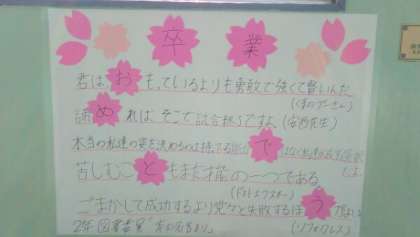 卒業
君は、おもっているよりも勇敢で強くて賢いんだ
(くまのプーさん)
諦めれば、そこで試合終了ですよ(安西先生)
本当の私達の姿を決めるのは持てる
苦しむこともまた才能の一つである
(ドストエフスキー)
ごまかして成功するより堂々と失敗するほう
(ソフォクレス)
2年 図書委員